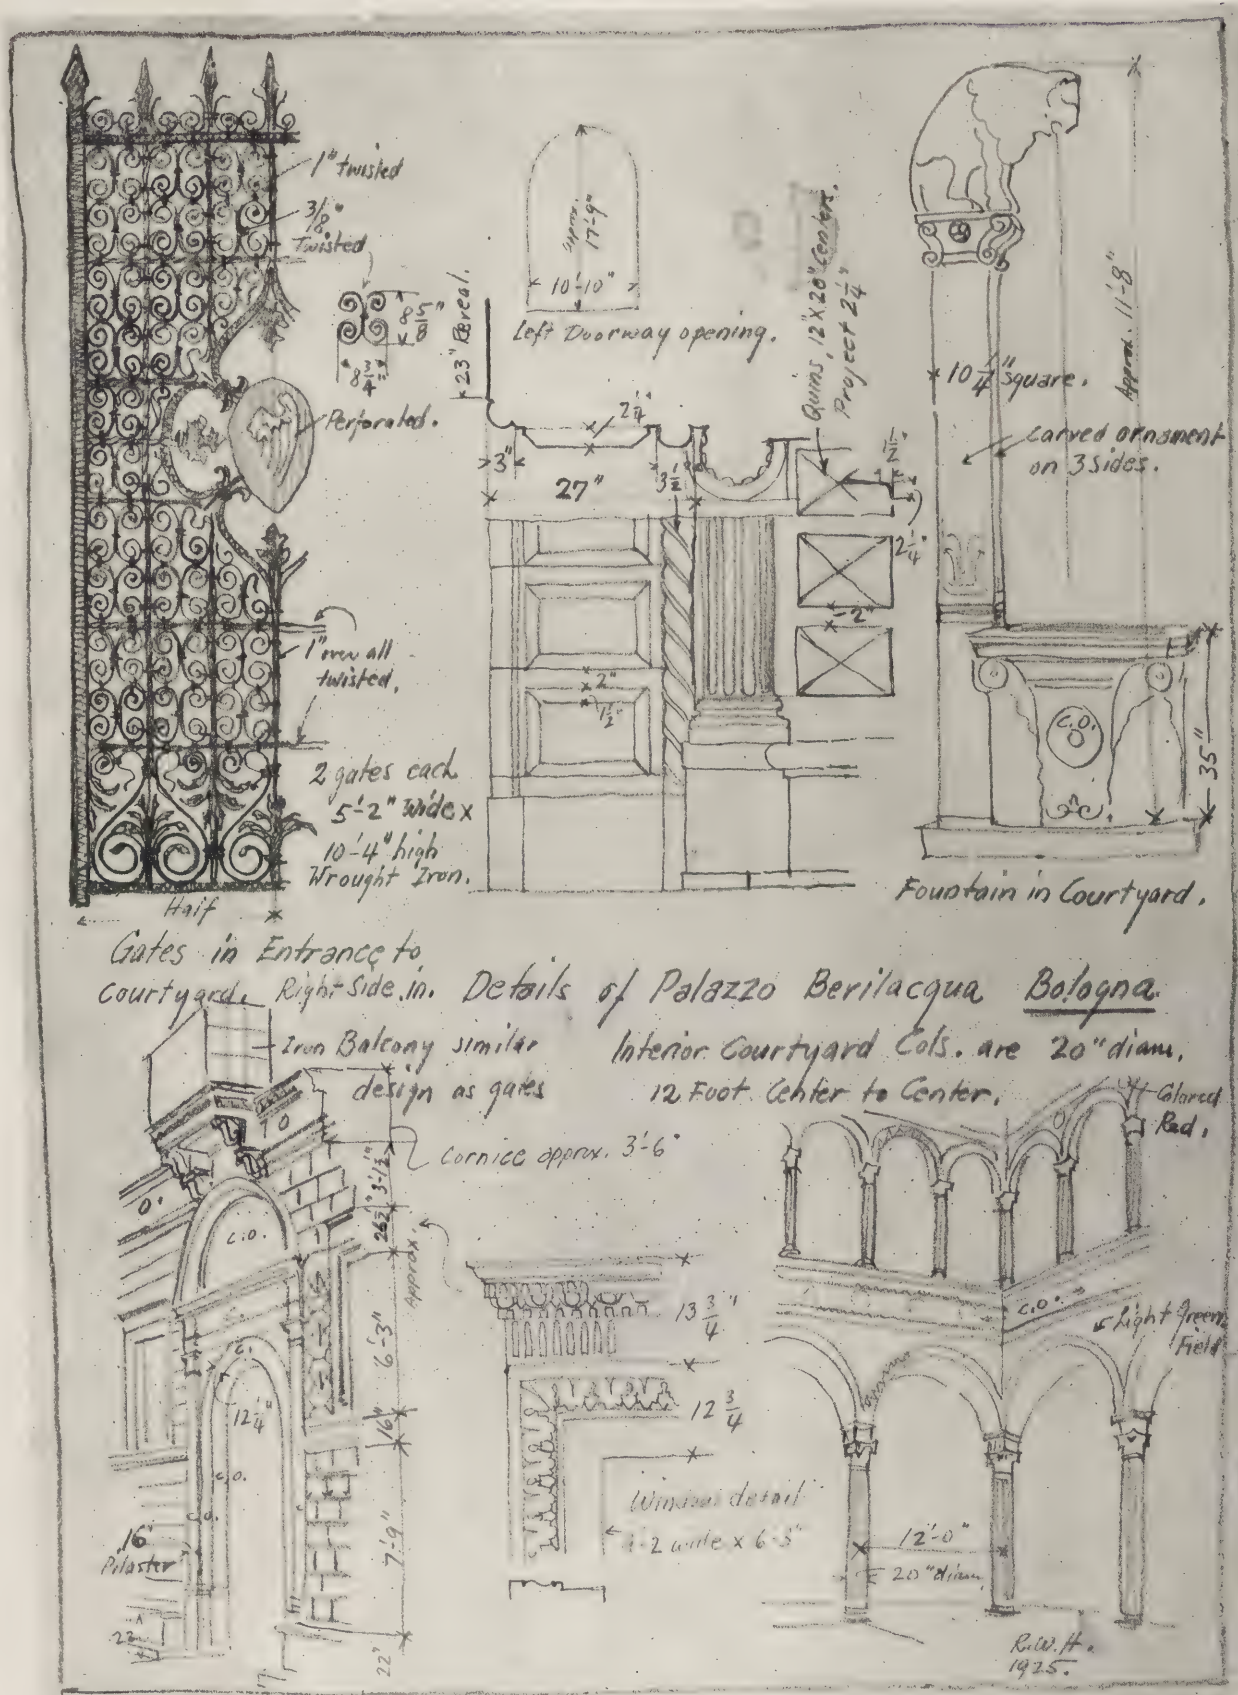 1" twisted
3/8"
Twisted
8 5/8"
8 3/4"
Perforated.
1" over all
twisted.
2 gates each
5'-2" wide x
10'-4" high
Wrought Iron.
Half
Gates in Entrance to
Courtyard. Right Side in.
approx.
17'-9"
10'-10"
Left Doorway opening.
23" Reveal.
2 1/4"
3"
27"
3 1/2"
Quins, 12" X 20" Centers.
Project 2 1/4"
1 1/2"
2 1/4"
2"
2"
1 1/2"
Approx. 11'-8"
10 1/4" square.
carved ornament
on 3 sides.
C.O.
35"
Fountain in Courtyard.
Details of Palazzo Berilacqua Bologna.
Interior Courtyard Cols. are 20" diam.
12 Foot Center to Center.
Iron Balcony similar
design as gates
Cornice approx. 3'-6"
3'-1 1/2"
26 1/2"
Approx.
6'-3"
16"
7'-9"
22"
C.O.
C.
C.
12 1/4"
C.O.
C.O.
16"
Pilaster
22"
13 3/4"
12 3/4
Window detail
x 6-3"
Colored
Red.
C.O.
Light Green
Field
12'-0"
20" diam
R.W.H.
1925.